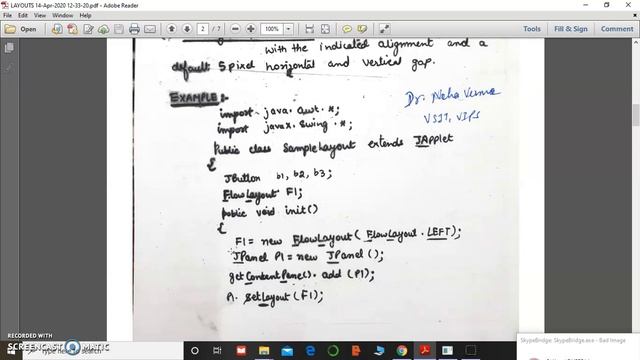 LAYOUTS 14-Apr-2020 12-33-20.pdf - Adobe Reader
File Edit View Window Help
Open 2 / 7 100% Tools Fill & Sign Comment
with the indicated alignment and a
default 5 pixel horizontal and vertical gap.
EXAMPLE :-
Dr. Neha Verma
VSIT, VIPS
import java.awt.*;
import javax.swing.*;
Public class SampleLayout extends JApplet
{
JButton b1, b2, b3;
FlowLayout F1;
public void init()
{
F1 = new FlowLayout( FlowLayout.LEFT);
JPanel P1 = new JPanel();
getContentPane().add(P1);
setLayout(F1);
RECORDED WITH
SCREENCAST MATIC
Type here to search
SkypeBridge: SkypeBridge.exe - Bad Image